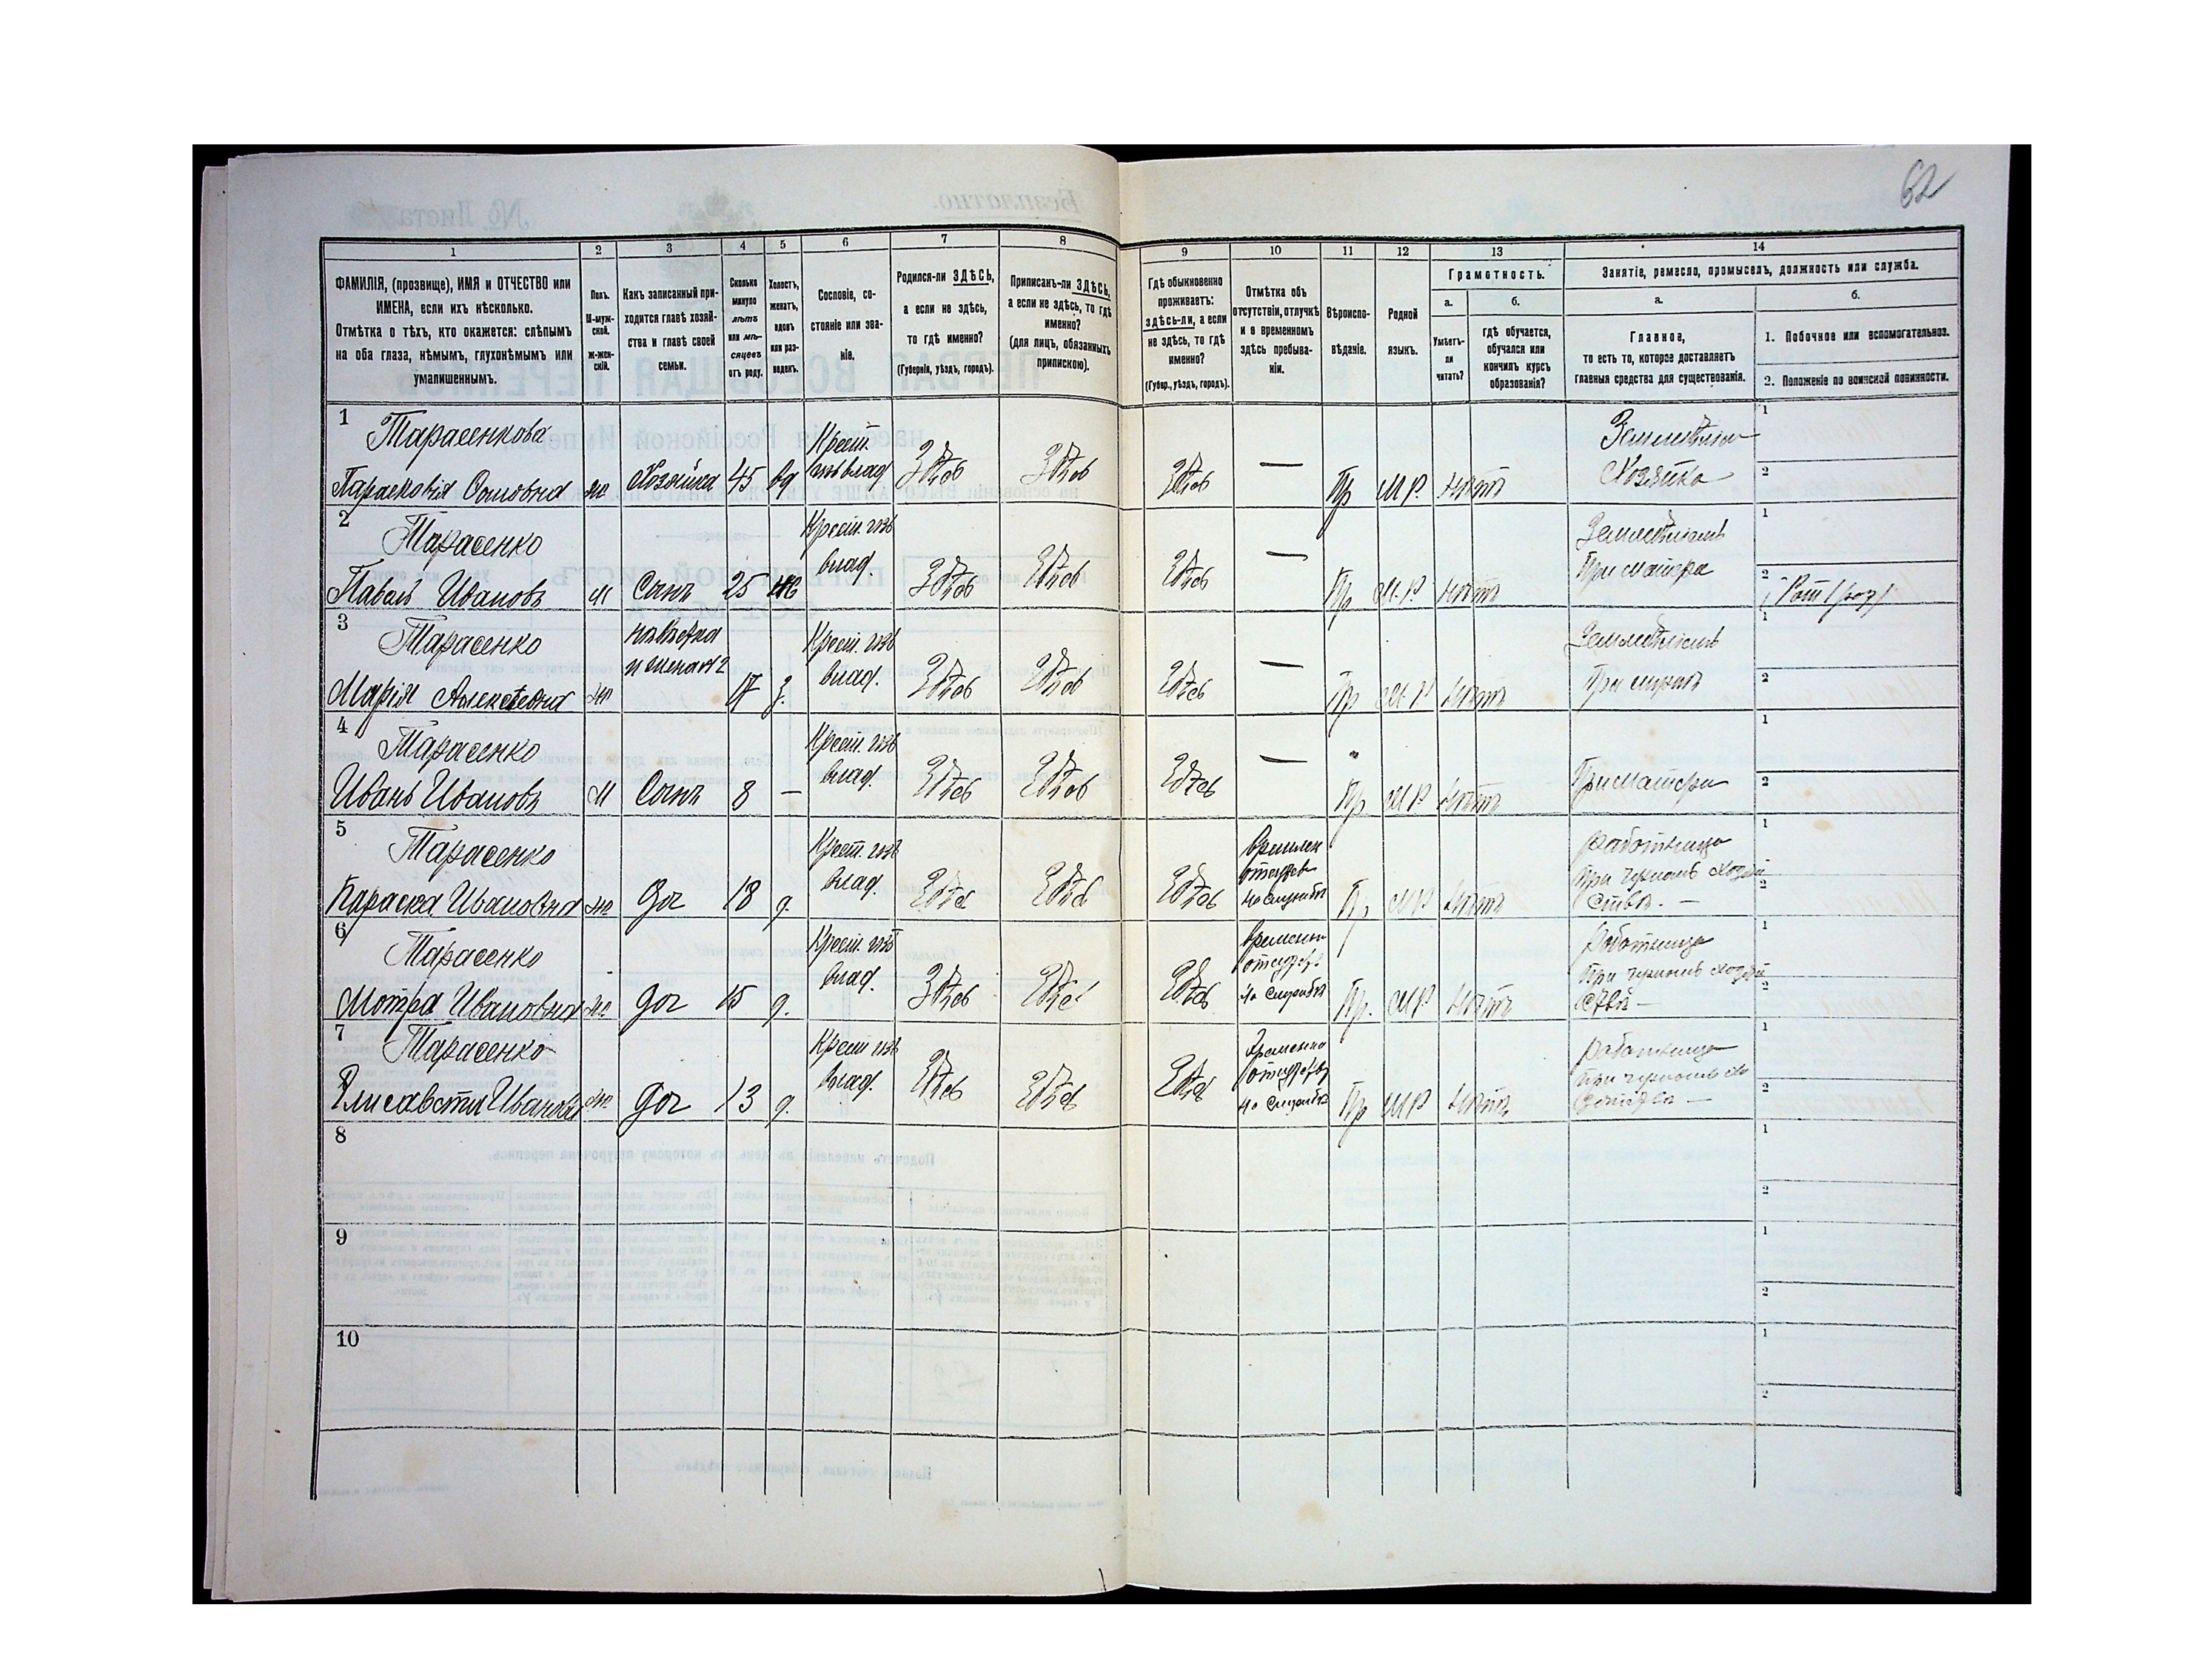 62
1
2
3
4
5
6
7
8
9
10
11
12
13
14
ФАМИЛІЯ, (прозвище), ИМЯ и ОТЧЕСТВО или
ИМЕНА, если ихъ нѣсколько.
Отмѣтка о тѣхъ, кто окажется: слѣпымъ
на оба глаза, нѣмымъ, глухонѣмымъ или
умалишеннымъ.
Полъ.
М-муж-
ской.
Ж-жен-
скій.
Какъ записанный при-
ходится главѣ хозяй-
ства и главѣ своей
семьи.
Сколько
минуло
лѣтъ
или мѣ-
сяцевъ
отъ роду.
Холостъ,
женатъ,
вдовъ
или раз-
веденъ.
Сословіе, со-
стояніе или зва-
ніе.
Родился-ли ЗДѢСЬ,
а если не здѣсь,
то гдѣ именно?
(Губернія, уѣздъ, городъ).
Приписанъ-ли ЗДѢСЬ,
а если не здѣсь, то гдѣ
именно?
(для лицъ, обязанныхъ
припискою).
Гдѣ обыкновенно
проживаетъ:
здѣсь-ли, а если
не здѣсь, то гдѣ
именно?
(Губер., уѣздъ, городъ).
Отмѣтка объ
отсутствіи, отлучкѣ
и о временномъ
здѣсь пребыва-
ніи.
Вѣроиспо-
вѣданіе.
Родной
языкъ.
Грамотность.
а.
Умѣетъ-
ли
читать?
б.
гдѣ обучается,
обучался или
кончилъ курсъ
образованія?
Занятіе, ремесло, промыселъ, должность или служба.
а.
Главное,
то есть то, которое доставляетъ
главныя средства для существованія.
б.
1. Побочное или вспомогательное.
2. Положеніе по воинской повинности.
1
Тарасенкова
Парасковія Осиповна
ж
Хозяйка
45
вд
Крест.
влад
Здѣсь
Здѣсь
Здѣсь
—
Пр
М Р.
Нѣтъ
Хозяйка
1
2
2
Тарасенко
Павелъ Ивановъ
М
Сынъ
25
Крест. изъ
влад.
Здѣсь
Здѣсь
Здѣсь
—
Пр
М. Р.
Нѣтъ
При матери
1
2
3
Тарасенко
Марія Алексѣевна
ж
невѣстка
и жена №2
17
з.
Крест. изъ
влад.
Здѣсь
Здѣсь
Здѣсь
—
Пр
М. Р
Нѣтъ
При мужѣ
1
2
4
Тарасенко
Иванъ Ивановъ
М
Сынъ
8
—
Крест. изъ
влад.
Здѣсь
Здѣсь
Здѣсь
—
Пр
М Р
Нѣтъ
При матери
1
2
5
Тарасенко
Параска Ивановна
ж
Доч
18
д.
Крест. изъ
влад.
Здѣсь
Здѣсь
Здѣсь
на службѣ
Пр
М Р
Нѣтъ
Работница
при черномъ хозяй
ствѣ. —
1
2
6
Тарасенко
Мотря Ивановна
ж
Доч
15
д.
Крест. изъ
влад.
Здѣсь
Здѣсь
Здѣсь
Временно
на службѣ
Пр.
М Р
Нѣтъ
Работница
при черномъ хозяй
ствѣ —
1
2
7
Тарасенко
Елисавета Ивановна
ж
Доч
13
д.
Крест изъ
влад.
Здѣсь
Здѣсь
Здѣсь
Временно
на службѣ
Пр
М Р
Нѣтъ
Работница
при черномъ хо
1
2
8
1
2
9
1
2
10
1
2